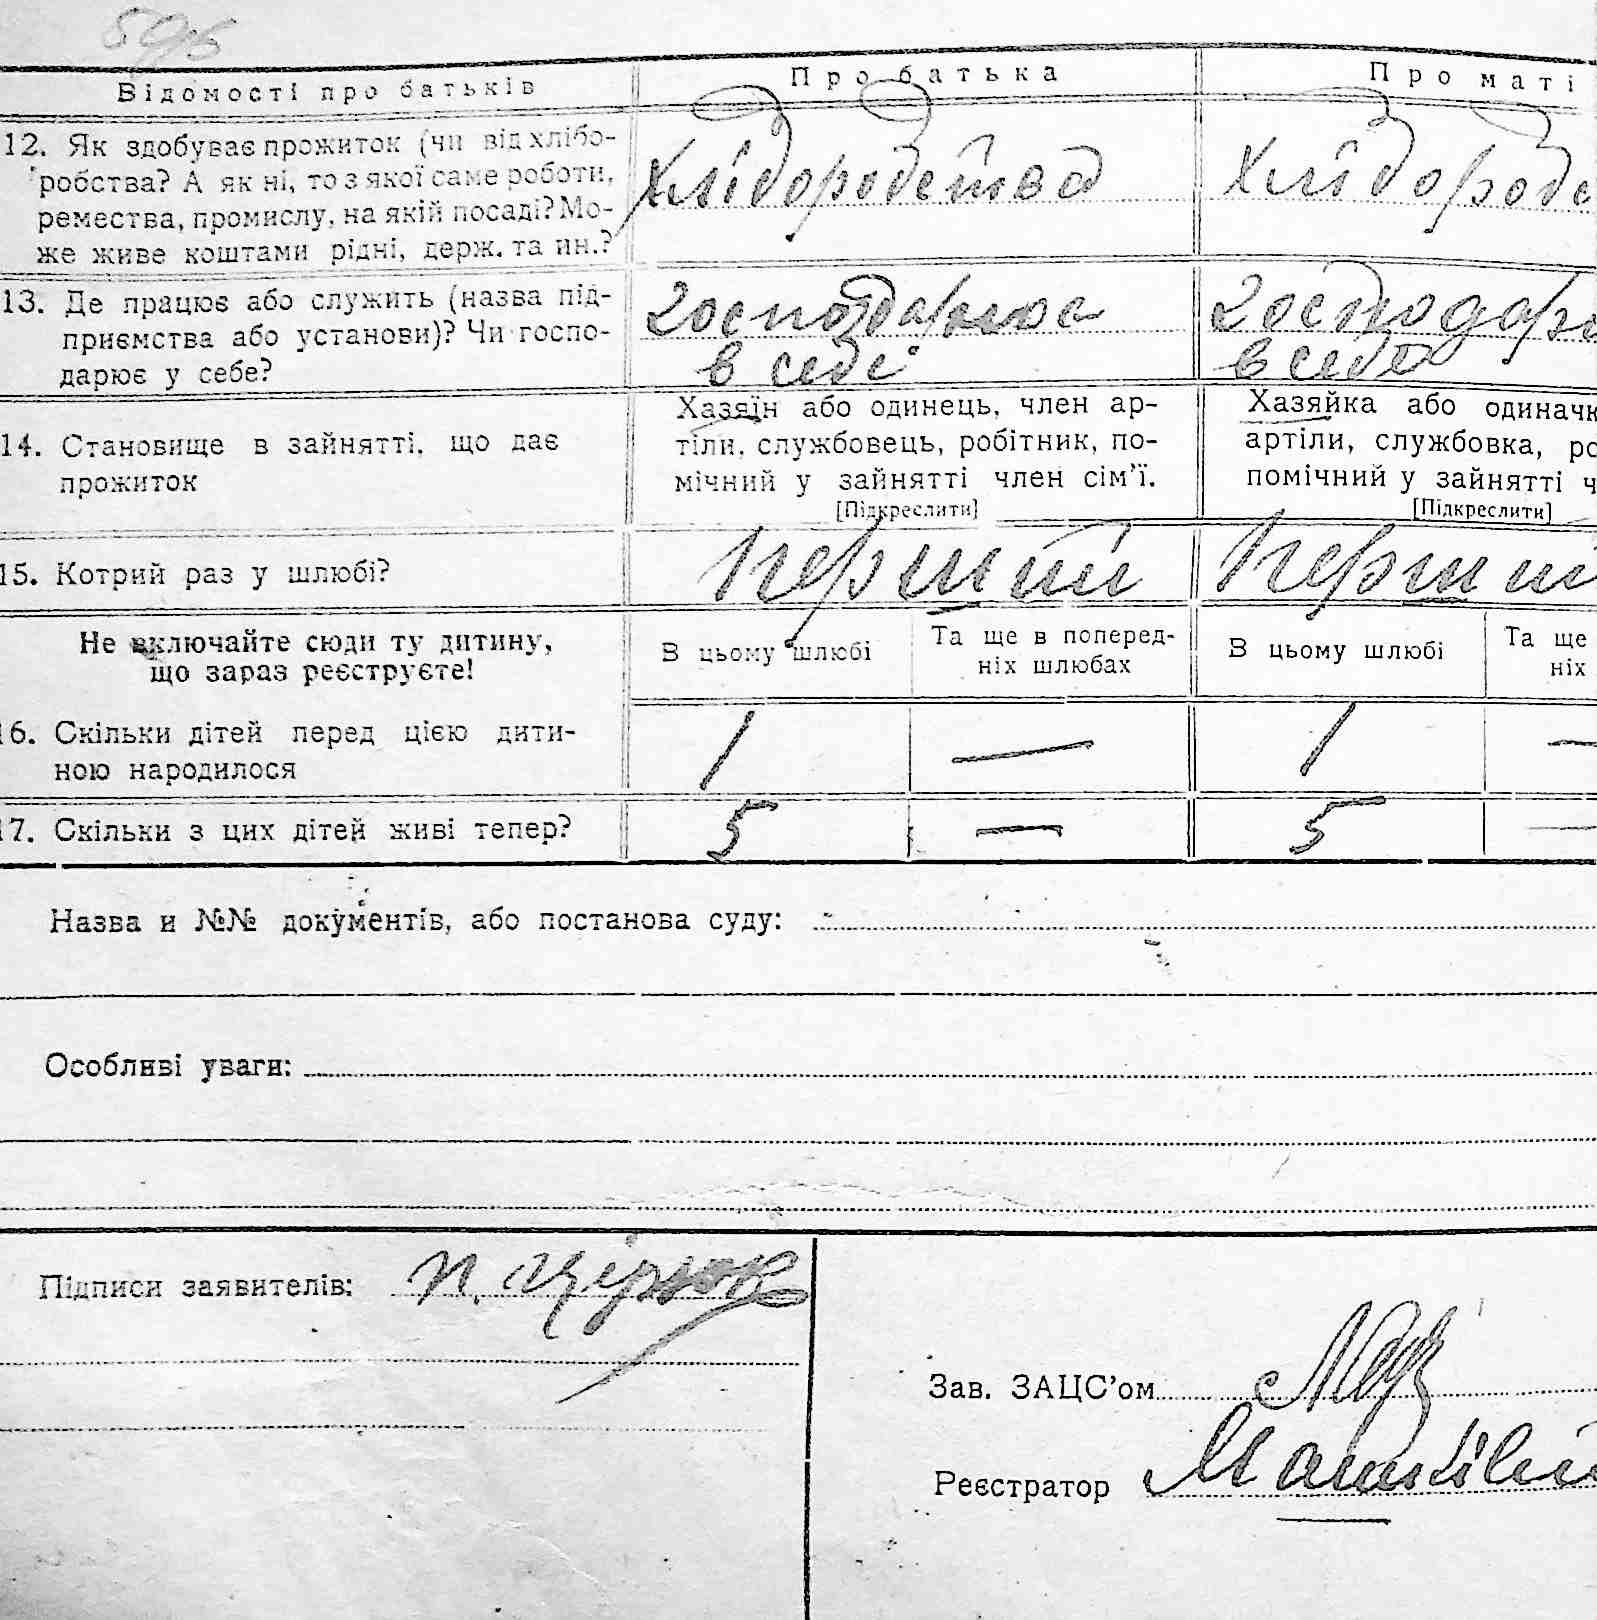 595
Відомості про батьків
Про батька
Про маті
12. Як здобуває прожиток (чи від хлібо-
робства? А як ні, то з якої саме роботи,
ремества, промислу, на якій посаді? Мо-
же живе коштами рідні, держ. та ин.?
хліборобства
хліборобс
13. Де працює або служить (назва під-
приємства або установи)? Чи госпо-
дарює у себе?
господарює
в себе
господарю
в себе
14. Становище в зайнятті, що дає
прожиток
Хазяїн або одинець, член ар-
тіли, службовець, робітник, по-
мічний у зайнятті член сім'ї.
[Підкреслити]
Хазяйка або одиначк
артіли, службовка, ро
помічний у зайнятті ч
[Підкреслити]
15. Котрий раз у шлюбі?
перший
перший
Не включайте сюди ту дитину,
що зараз реєструєте!
В цьому шлюбі
Та ще в поперед-
ніх шлюбах
В цьому шлюбі
Та ще
ніх
16. Скільки дітей перед цією дити-
ною народилося
1 — 1 —
17. Скільки з цих дітей живі тепер?
5 — 5 —
Назва и №№ документів, або постанова суду:
Особливі уваги:
Підписи заявителів: П.
Зав. ЗАЦС'ом
Реєстратор